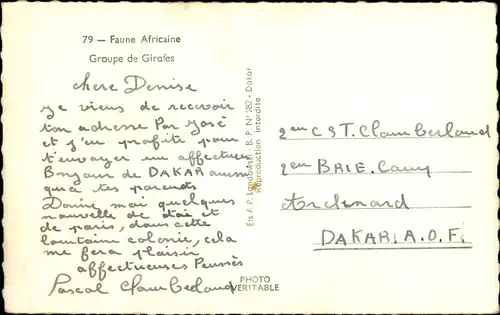 79 — Faune Africaine
Groupe de Girafes
chere Denise
je viens de recevoir
ton adresse Par José
et j'en profite pour
t'envoyer un affectueux
Bonjour de DAKAR aussi
qu'a tes parents
Donne moi quelques
nouvelle de toi et
de paris, dans cette
lointaine colonie, cela
me fera plaisir
affectueuses Pensées
Pascal Clamberland
Ets A.P. Landowski - B. P. N° 282 - Dakar
Reproduction interdite
PHOTO
VERITABLE
2eu CST. Clamberland
2eu BRIE. Camp
Archinard
DAKAR. A.O.F.